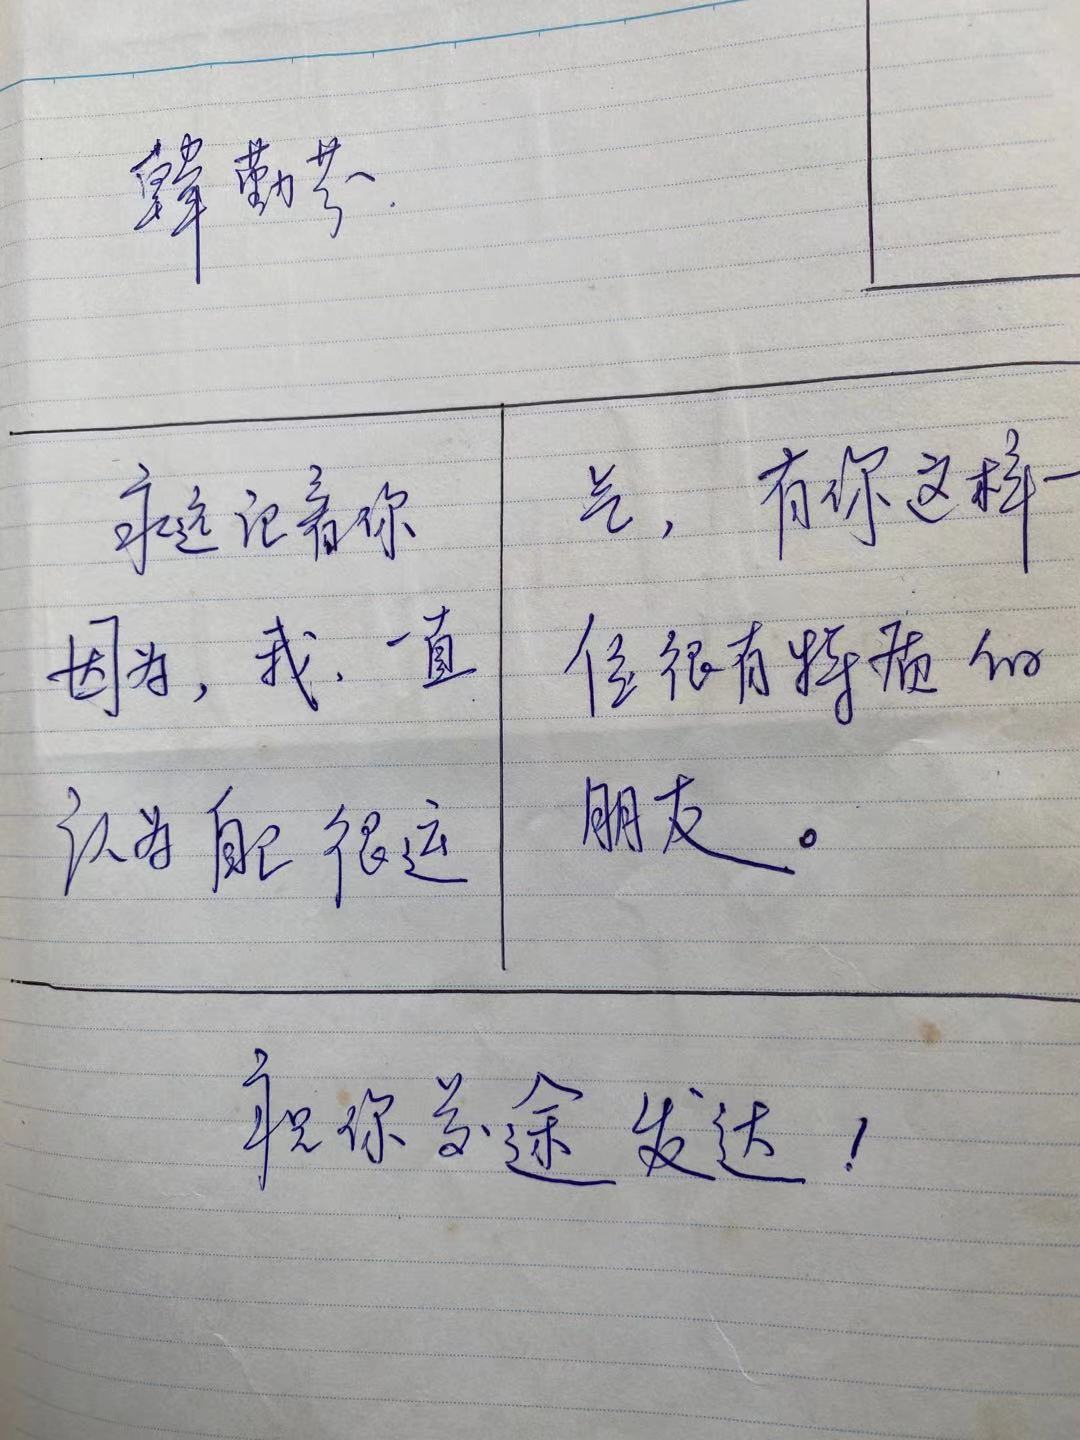 韓勤芬
永远记着你
因为, 我、一直
认为自己很运
气, 有你这样一
位很有特质的
朋友。
祝你前途发达!